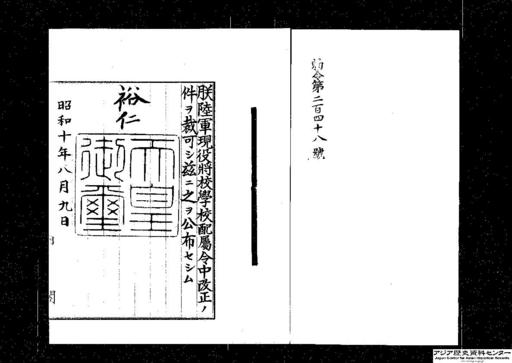 勅令第二百四十八號
朕陸軍現役將校學校配屬令中改正ノ
件ヲ裁可シ茲ニ之ヲ公布セシム
裕仁
天皇
御璽
昭和十年八月九日
アジア歴史資料センター
Japan Center for Asian Historical Records